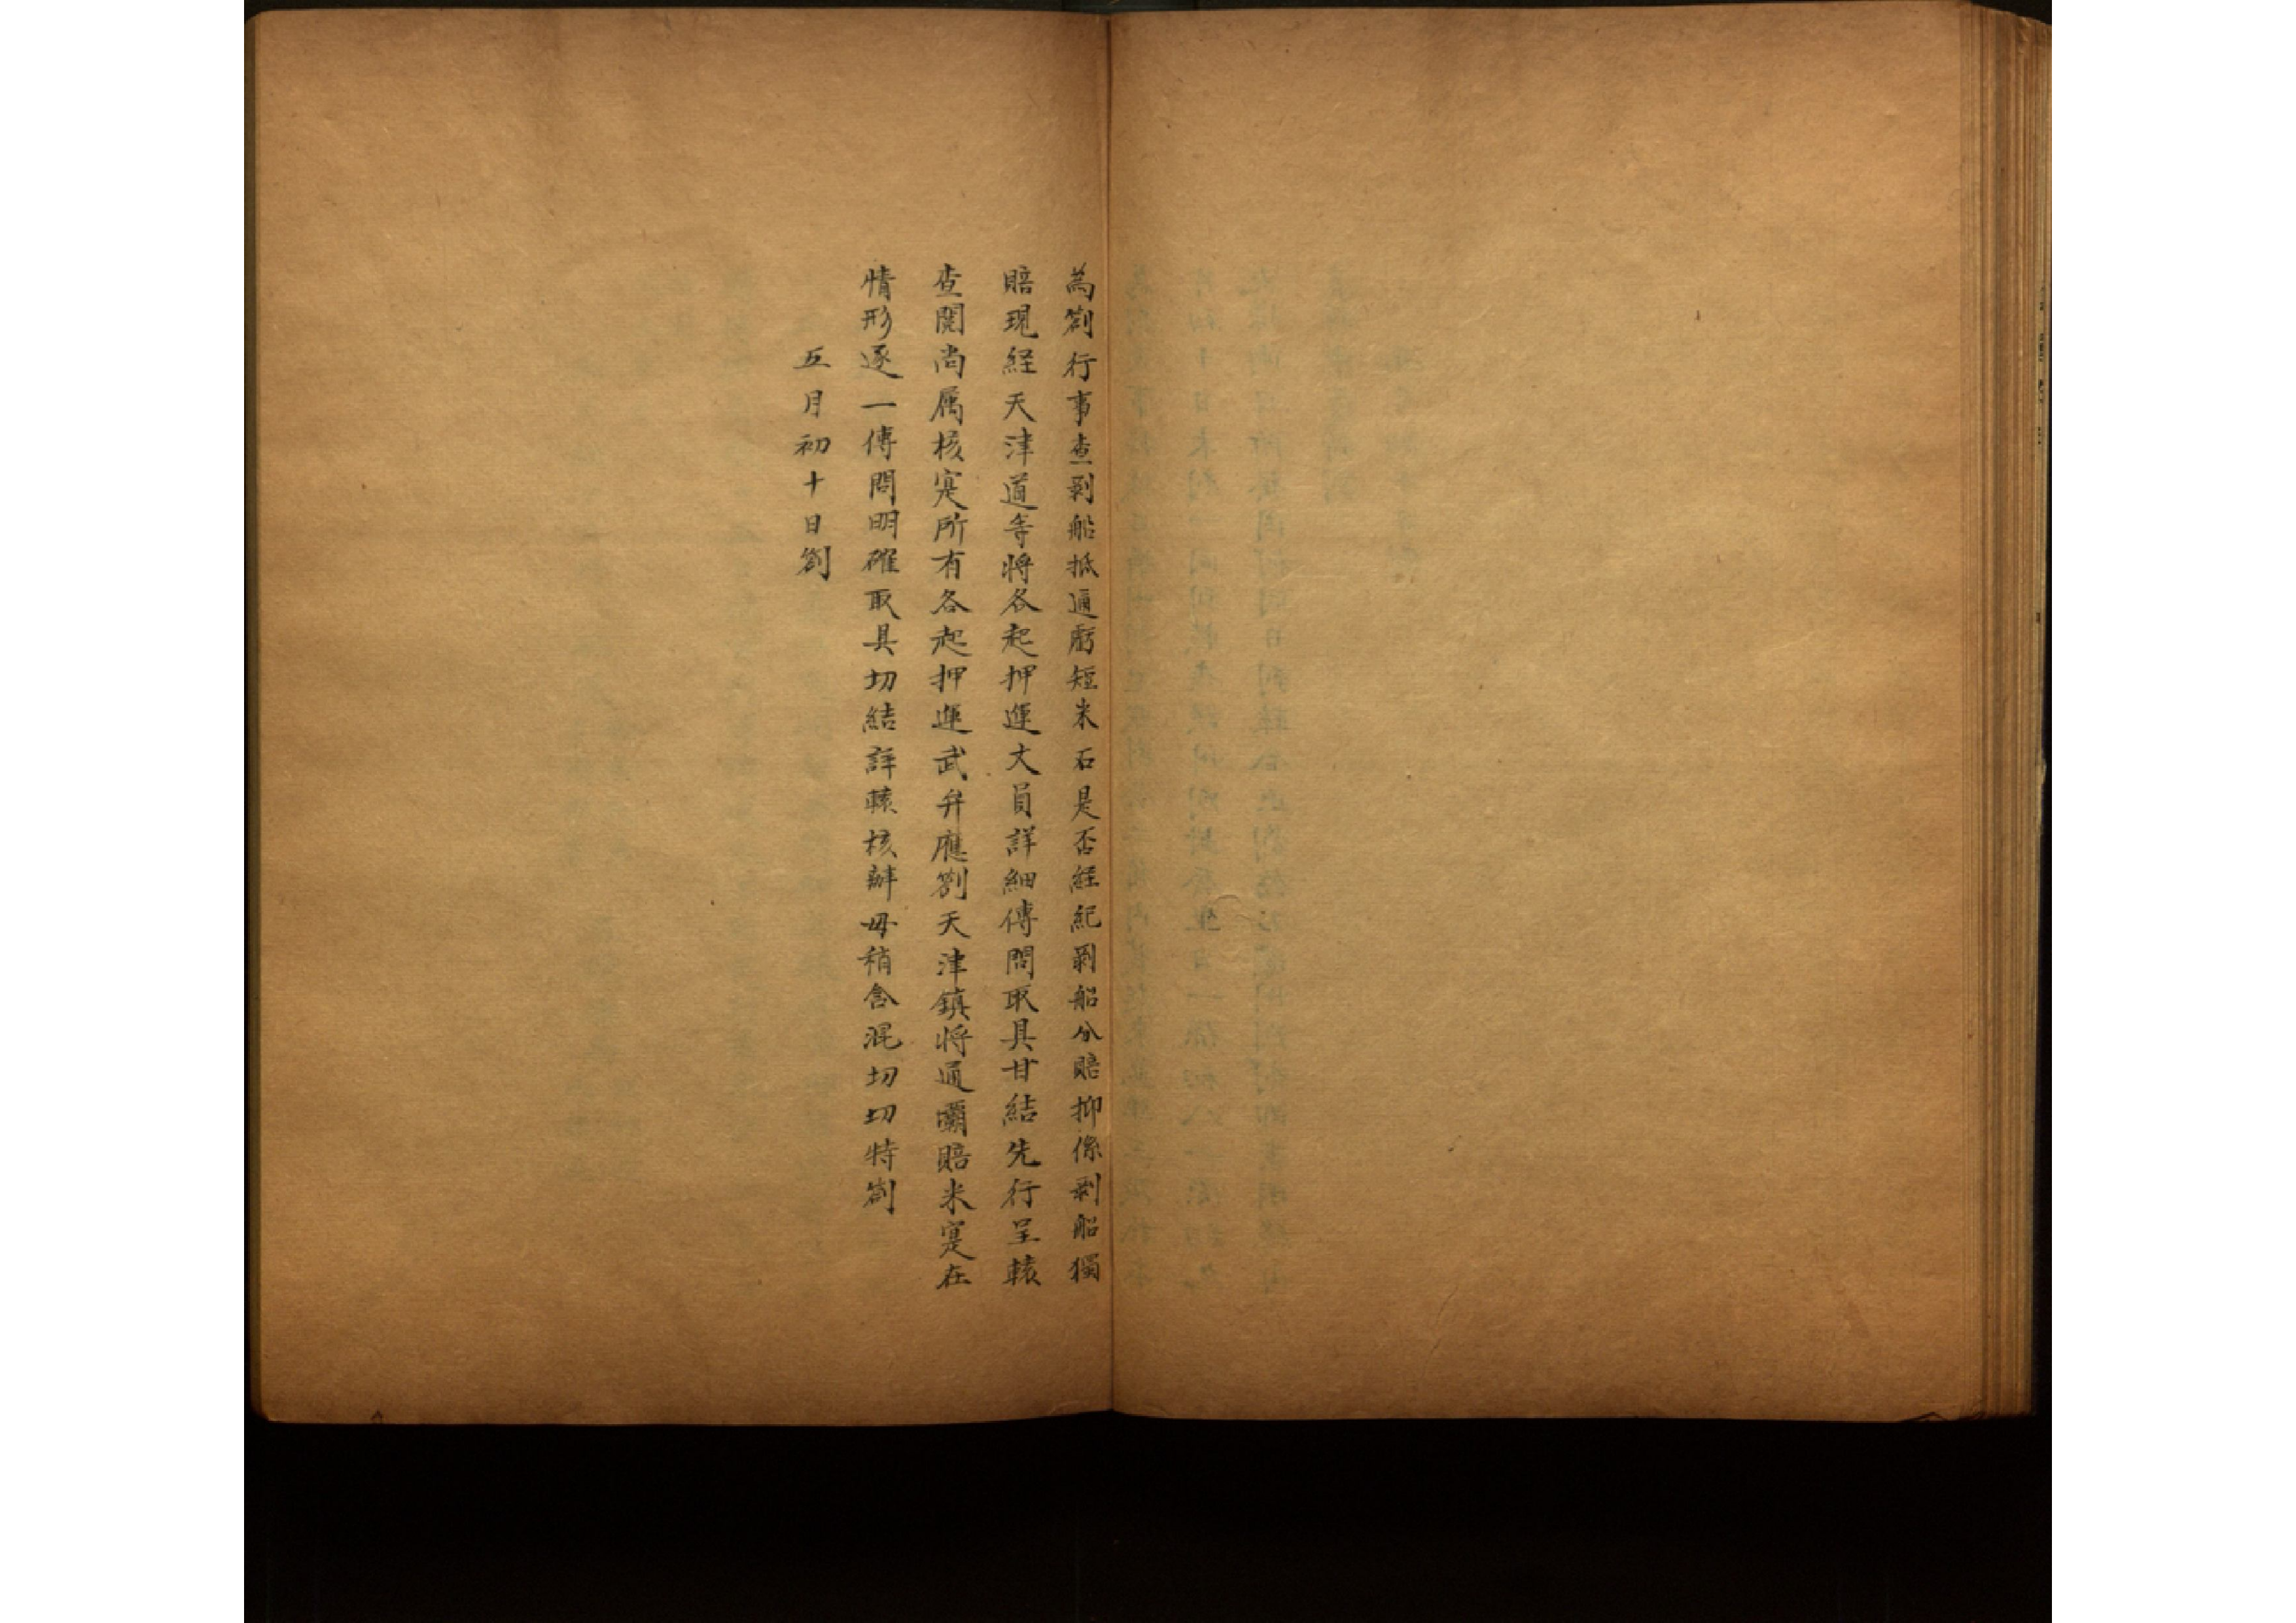 為劄行事查剥船抵通虧短米石是否經紀剥船分賠抑係剥船獨
賠現経天津道等将各起押運文員詳細傳問取具甘結先行呈轅
查閱尚属核寔所有各起押運武弁應劄天津鎮将通壩賠米寔在
情形逐一傳問明確取具切結詳轅核辦毋稍含混切切特劄
五月初十日劄